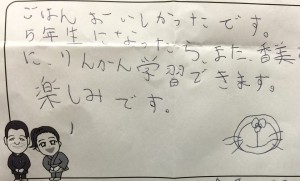 ごはんおいしかったです。
5年生になったら、また、香美
に、りんかん学習できます。
楽しみです。